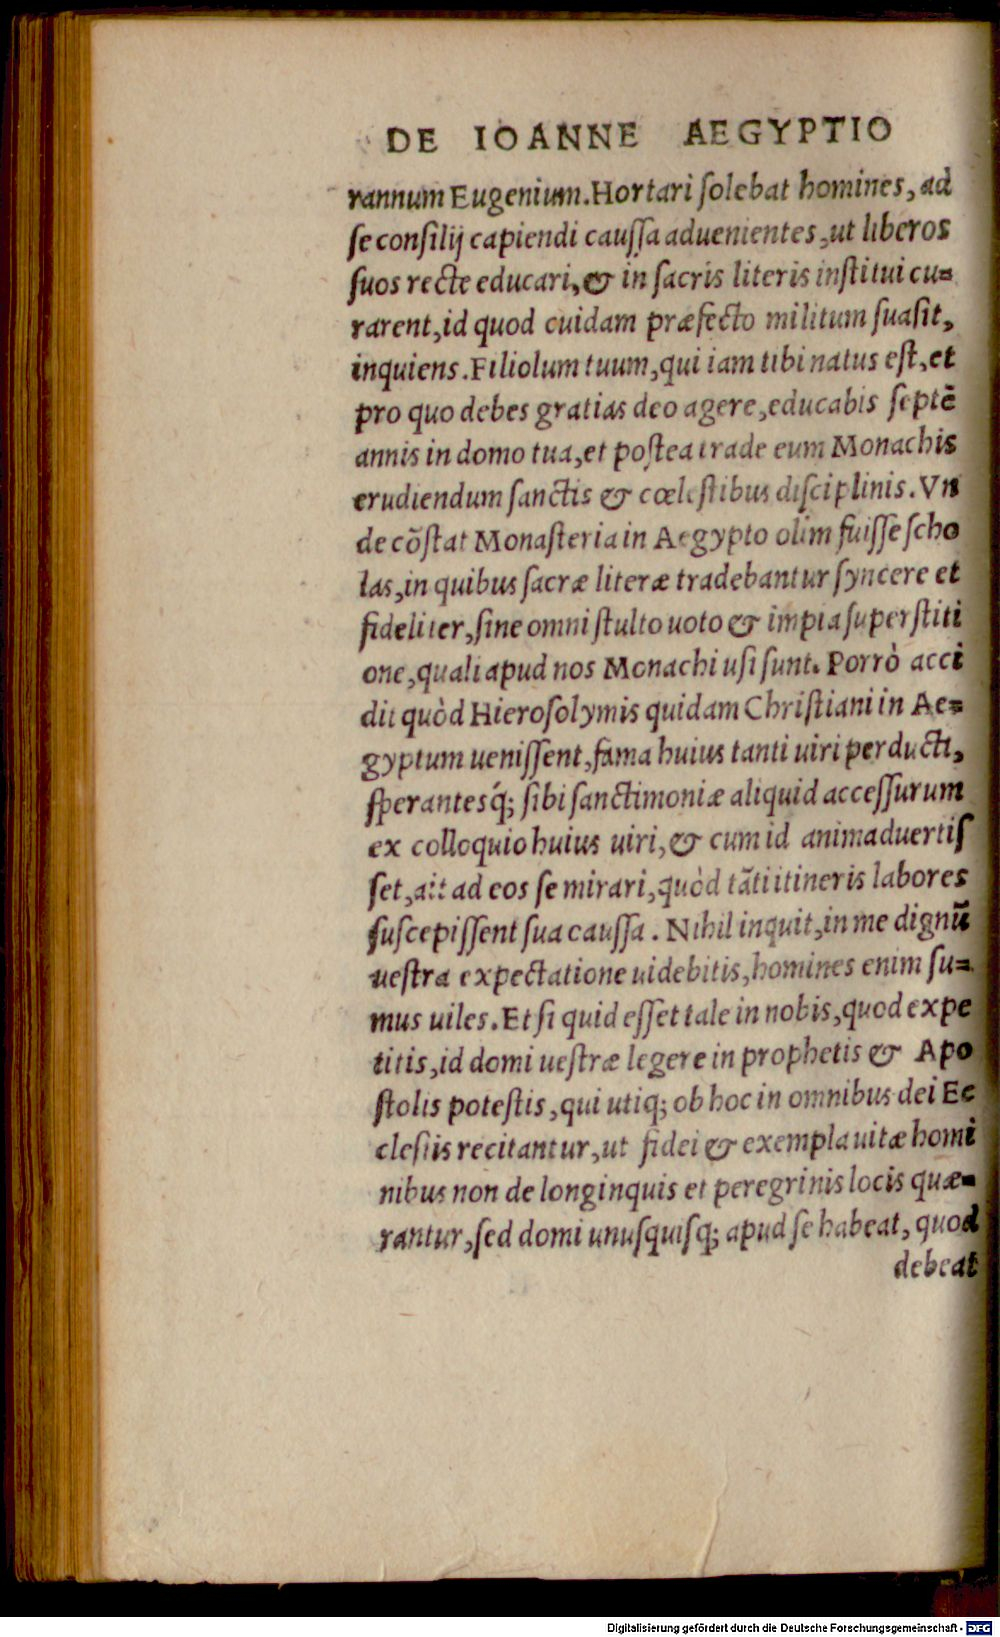 DE IOANNE AEGYPTIO
rannum Eugenium. Hortari ſolebat homines, ad
ſe conſilij capiendi cauſſa aduenientes, ut liberos
ſuos recte educari, & in ſacris literis inſtitui cu-
rarent, id quod cuidam præfecto militum ſuaſit,
inquiens. Filiolum tuum, qui iam tibi natus eſt, et
pro quo debes gratias deo agere, educabis ſeptē
annis in domo tua, et poſtea trade eum Monachis
erudiendum ſanctis & cœleſtibus diſciplinis. Vn
de cōſtat Monaſteria in Aegypto olim fuiſſe ſcho
las, in quibus ſacræ literæ tradebantur ſyncere et
fideliter, ſine omni ſtulto uoto & impia ſuperſtiti
one, quali apud nos Monachi uſi ſunt. Porrò acci
dit quòd Hieroſolymis quidam Chriſtiani in Ae-
gyptum ueniſſent, fama huius tanti uiri perducti,
ſperantesq́; ſibi ſanctimoniæ aliquid acceſſurum
ex colloquio huius uiri, & cum id animaduertiſ
ſet, ait ad eos ſe mirari, quòd tāti itineris labores
ſuſcepiſſent ſua cauſſa. Nihil inquit, in me dignū
ueſtra expectatione uidebitis, homines enim ſu-
mus uiles. Et ſi quid eſſet tale in nobis, quod expe
titis, id domi ueſtræ legere in prophetis & Apo
ſtolis poteſtis, qui utiq; ob hoc in omnibus dei Ec
cleſiis recitantur, ut fidei & exempla uitæ homi
nibus non de longinquis et peregrinis locis quæ-
rantur, ſed domi unuſquiſq; apud ſe habeat, quod
debeat
Digitalisierung gefördert durch die Deutsche Forschungsgemeinschaft - DFG